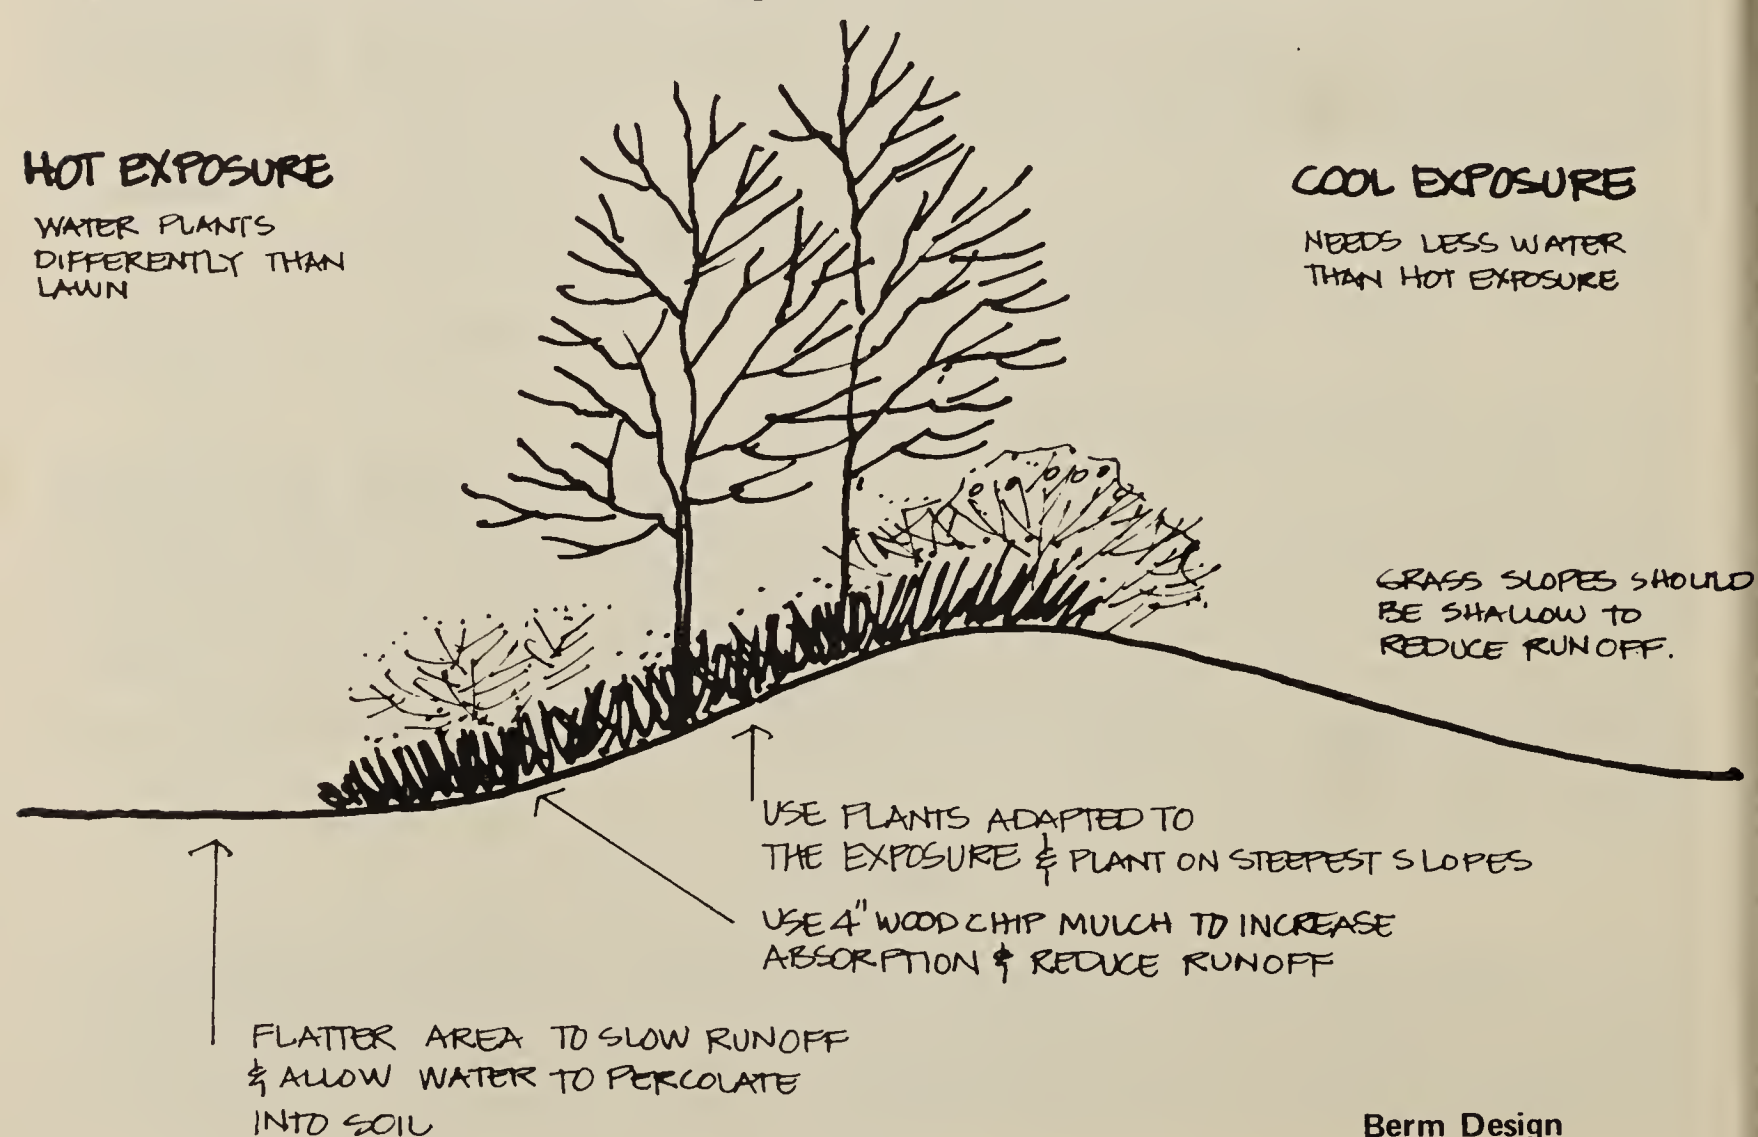 HOT EXPOSURE
WATER PLANTS
DIFFERENTLY THAN
LAWN
COOL EXPOSURE
NEEDS LESS WATER
THAN HOT EXPOSURE
GRASS SLOPES SHOULD
BE SHALLOW TO
REDUCE RUNOFF.
USE PLANTS ADAPTED TO
THE EXPOSURE & PLANT ON STEEPEST SLOPES
USE 4" WOOD CHIP MULCH TO INCREASE
ABSORPTION & REDUCE RUNOFF
FLATTER AREA TO SLOW RUNOFF
& ALLOW WATER TO PERCOLATE
INTO SOIL
Berm Design